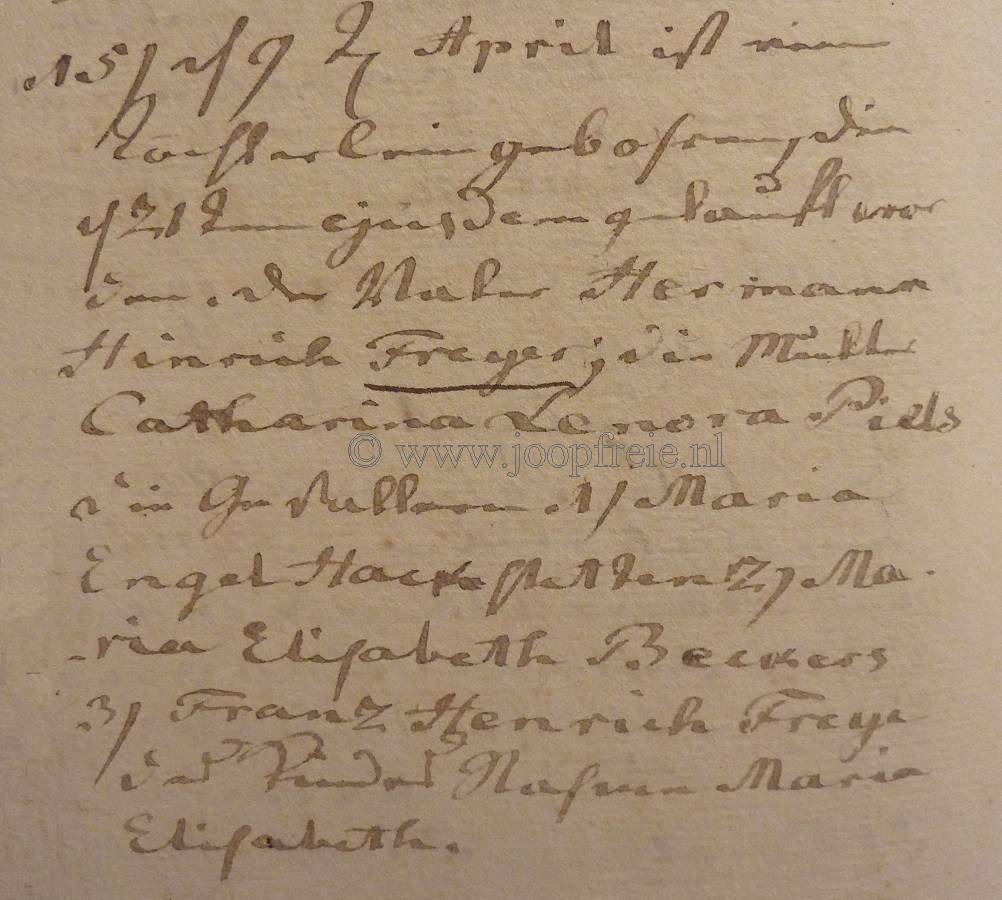 15) d 9t April ist ein
Töchterlein gebohren, den
12ten ejusdem getauft wor
den. der Vater Hermann
Hinrich Freyer, die Mutter
Catharina Lenora Piels
© www.joopfreie.nl
die Gevattern 1) Maria
Engel Hackestetten 2) Ma-
-ria Elisabeth Beckers
3) Franz Henrich Freye
des Kindes Nahmen Maria
Elisabeth.